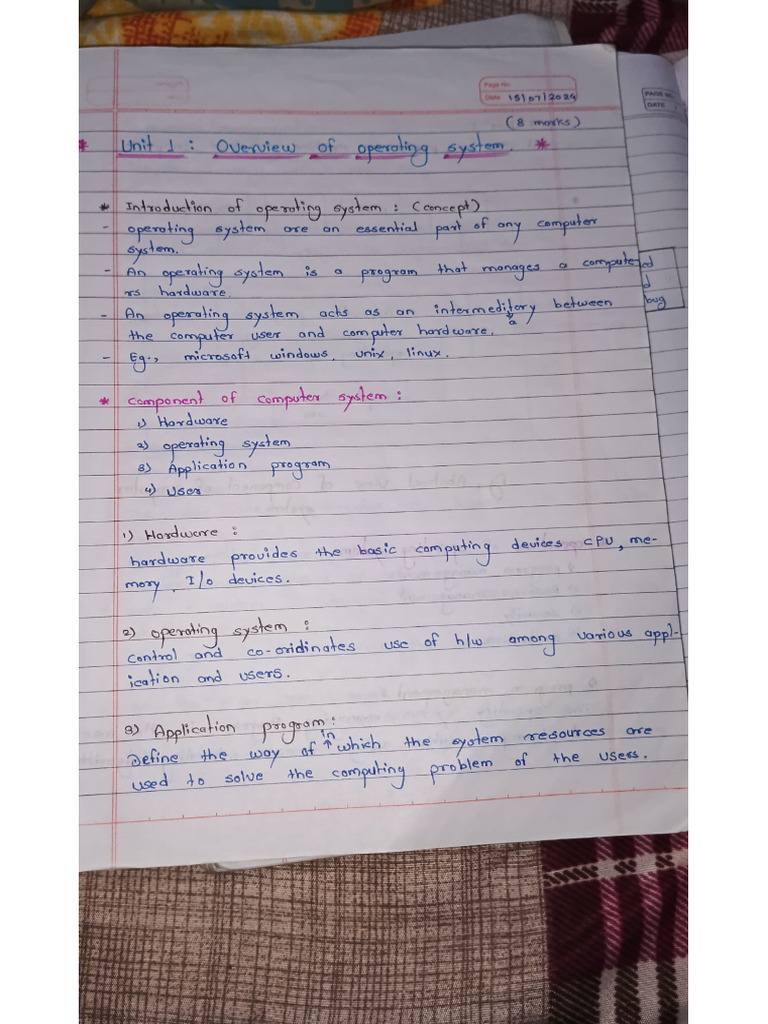 Page No.
Date 15/07/2024
PAGE No.
DATE
(8 marks)
* Unit 1 : Overview of operating system. *
* Introduction of operating system : (concept)
- operating system are an essential part of any computer
system.
- An operating system is a program that manages a compute
rs hardware.
- An operating system acts as an intermeditory between
a
the computer user and computer hardware.
- Eg., microsoft windows, unix, linux.
* Component of computer system :
1) Hardware
2) operating system
3) Application program
4) User
1) Hardware :
hardware provides the basic computing devices CPU, me-
mory, I/o devices.
2) operating system :
control and co-oridinates use of h/w among various appl-
ication and users.
3) Application program :
in
Define the way of which the system resources are
used to solve the computing problem of the users.
cd
d
bug